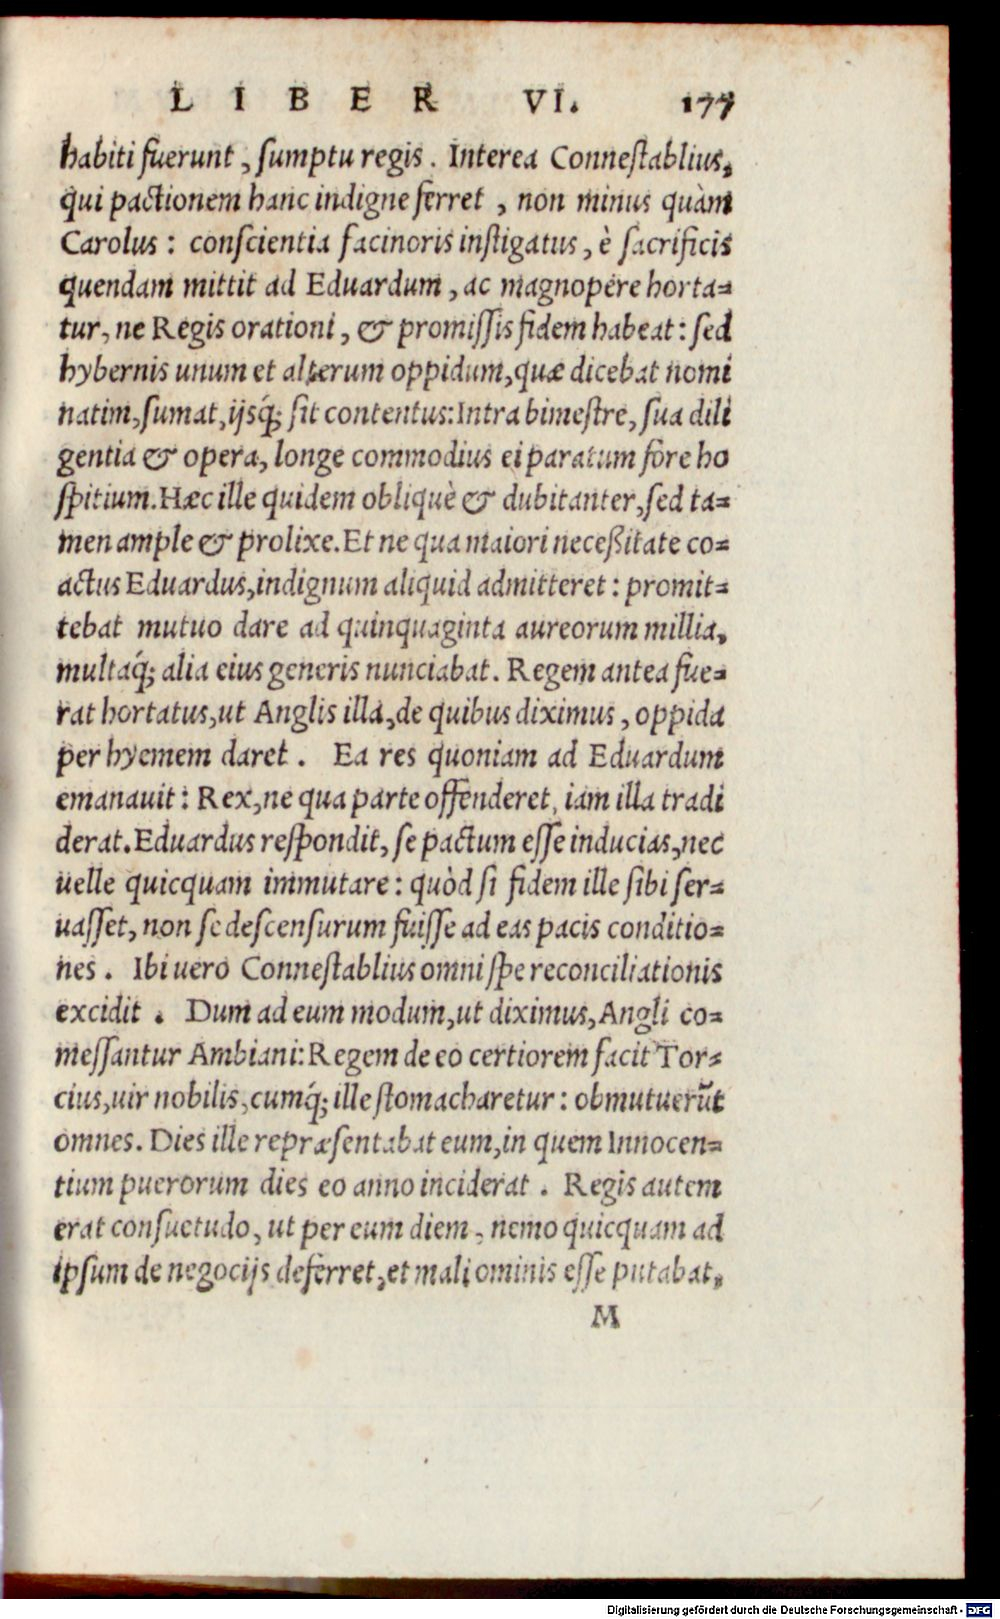 LIBER VI. 177
habiti fuerunt, sumptu regis. Interea Connestablius,
qui pactionem hanc indigne ferret, non minus quàm
Carolus: conscientia facinoris instigatus, è sacrificis
quendam mittit ad Eduardum, ac magnopere horta-
tur, ne Regis orationi, & promissis fidem habeat: sed
hybernis unum et alterum oppidum, quæ dicebat nomi
natim, sumat, ijsq́; sit contentus: Intra bimestre, sua dili
gentia & opera, longe commodius ei paratum fore ho
spitium. Hæc ille quidem obliquè & dubitanter, sed ta-
men ample & prolixe. Et ne qua maiori neceßitate co-
actus Eduardus, indignum aliquid admitteret: promit-
tebat mutuo dare ad quinquaginta aureorum millia,
multaq́; alia eius generis nunciabat. Regem antea fue-
rat hortatus, ut Anglis illa, de quibus diximus, oppida
per hyemem daret. Ea res quoniam ad Eduardum
emanauit: Rex, ne qua parte offenderet, iam illa tradi
derat. Eduardus respondit, se pactum esse inducias, nec
uelle quicquam immutare: quòd si fidem ille sibi ser-
uasset, non se descensurum fuisse ad eas pacis conditio-
nes. Ibi uero Connestablius omni spe reconciliationis
excidit. Dum ad eum modum, ut diximus, Angli co-
messantur Ambiani: Regem de eo certiorem facit Tor-
cius, uir nobilis, cumq́; ille stomacharetur: obmutuerũt
omnes. Dies ille repræsentabat eum, in quem Innocen-
tium puerorum dies eo anno inciderat. Regis autem
erat consuetudo, ut per eum diem, nemo quicquam ad
ipsum de negocijs deferret, et mali ominis esse putabat,
M
Digitalisierung gefördert durch die Deutsche Forschungsgemeinschaft - DFG